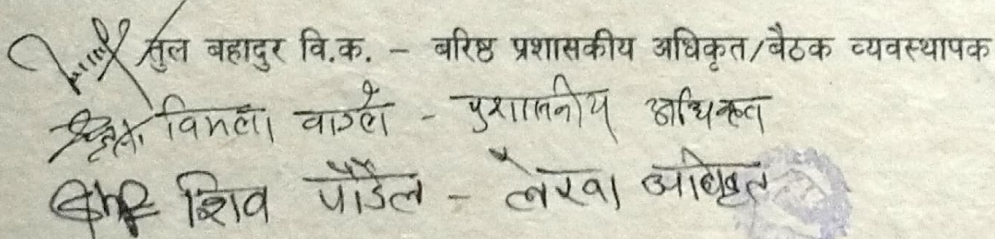 तुल बहादुर वि.क. - बरिष्ठ प्रशासकीय अधिकृत/बैठक व्यवस्थापक
विमला वाग्ले - प्रशासनीय अधिकृत
शिव पौडेल - लेखा अधिकृत